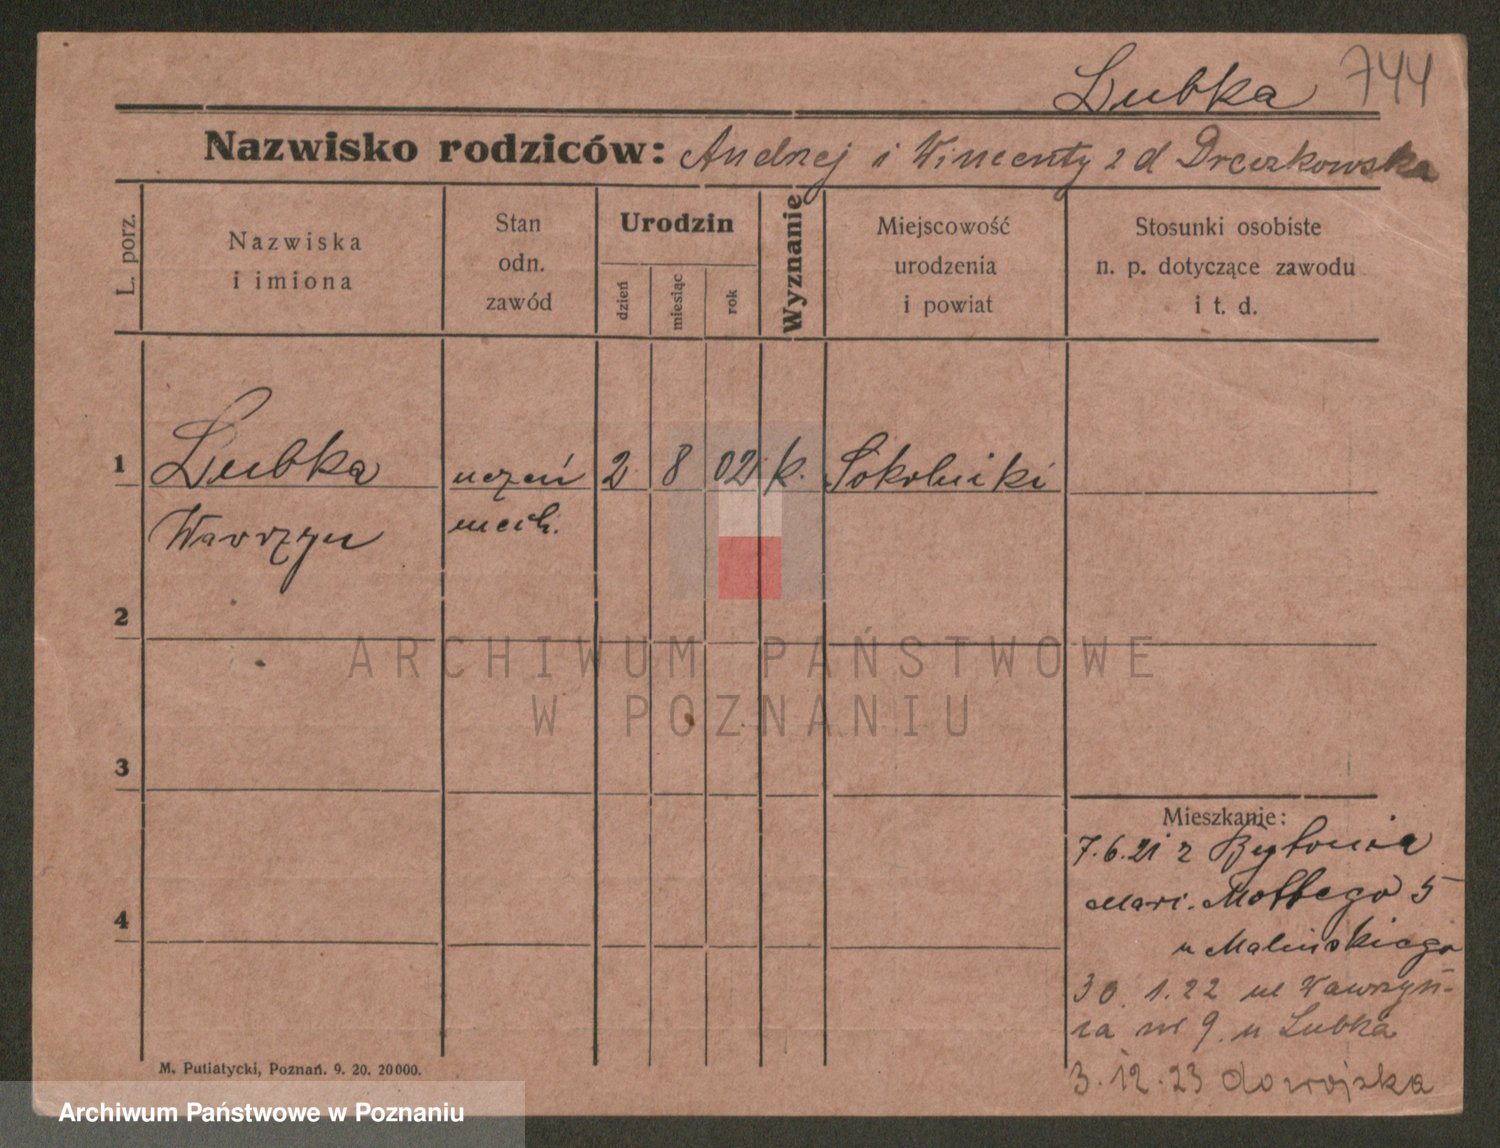 Lubka 744
Nazwisko rodziców: Andrzej i Wincenty z d Dreczkowska
L. porz.
Nazwiska
i imiona
Stan
odn.
zawód
Urodzin
dzień
miesiąc
rok
Wyznanie
Miejscowość
urodzenia
i powiat
Stosunki osobiste
n. p. dotyczące zawodu
i t. d.
1 Lubka uczeń 2 8 02 k. Sokolniki
Wawrzyn mech.
2
3
Mieszkanie:
7.6.21 z Bytonia
Mari. Mottego 5
4
u Malińskiego
30.1.22 ul Wawrzyń-
ca nr 9 u Lubka
3.12.23 do wojska
M. Putiatycki, Poznań. 9. 20. 20000.
ARCHIWUM PAŃSTWOWE
W POZNANIU
Archiwum Państwowe w Poznaniu